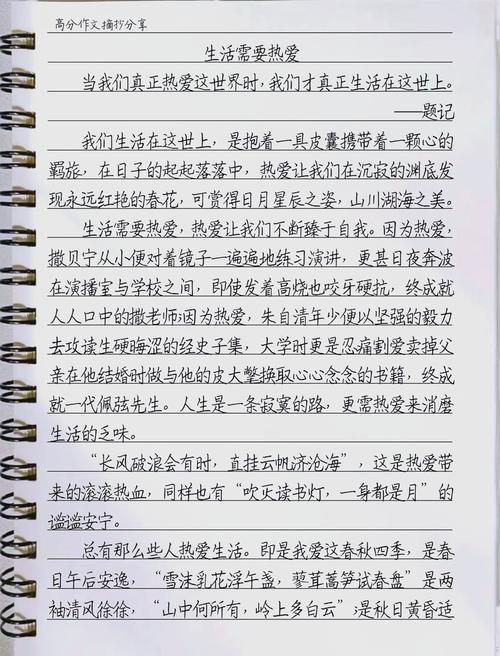 高分作文摘抄分享
生活需要热爱
当我们真正热爱这世界时，我们才真正生活在这世上。
——题记
我们生活在这世上，是抱着一具皮囊携带着一颗心的
羁旅，在日子的起起落落中，热爱让我们在沉寂的渊底发
现永远红艳的春花，可赏得日月星辰之姿，山川湖海之美。
生活需要热爱，热爱让我们不断臻于自我。因为热爱，
撒贝宁从小便对着镜子一遍遍地练习演讲，更甚日夜奔波
在演播室与学校之间，即使发着高烧也咬牙硬抗，终成就
人人口中的撒老师；因为热爱，朱自清年少便以坚强的毅力
去攻读生硬晦涩的经史子集，大学时更是忍痛割爱卖掉父
亲在他结婚时做与他的皮大氅换取心心念念的书籍，终成
就一代佩弦先生。人生是一条寂寞的路，更需热爱来消磨
生活的乏味。
“长风破浪会有时，直挂云帆济沧海”，这是热爱带
来的滚滚热血，同样也有“吹灭读书灯，一身都是月”的
谧谧安宁。
总有那么些人热爱生活。即是我爱这春秋四季，是春
日午后安逸，“雪沫乳花浮午盏，蓼茸蒿笋试春盘”是两
袖清风徐徐，“山中何所有，岭上多白云”；是秋日黄昏适